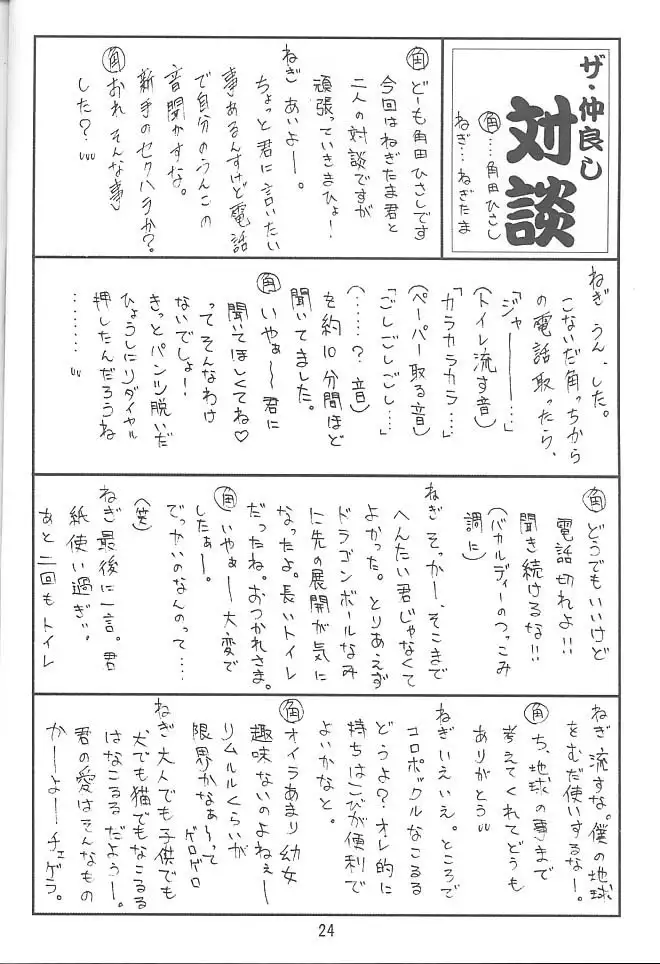 ザ・仲良し
対談
角…角田ひさし
ねぎ…ねぎたま
角 どーも角田ひさしです
今回はねぎたま君と
二人の対談ですが
頑張っていきまひょ!
ねぎ あいよー。
ちょっと君に言いたい
事あるんすけど電話
で自分のうんこの
音聞かすな。
新手のセクハラか?
角 おれ そんな事
した?
ねぎ うん、した。
こないだ角っちから
の電話取ったら、
「ジャーーー…」
(トイレ流す音)
「カラカラカラ…」
(ペーパー取る音)
「ごしごしごし…」
(……? 音)
を約10分間ほど
聞いてました。
角 いやぁ〜君に
聞いてほしくてね♡
ってそんなわけ
ないでしょ!
きっとパンツ脱いだ
ひょうしにリダイヤル
押したんだろうね
………
角 どうでもいいけど
電話切れよ!!
聞き続けるな!!
(バカルディーのつっこみ
調に)
ねぎ そっかー、そこまで
へんたい君じゃなくて
よかった。とりあえず
ドラゴンボールなみ
に先の展開が気に
なったよ。長いトイレ
だったね。おつかれさま。
角 いやぁー大変で
したぁー。
でっかいのなんのって……
(笑)
ねぎ 最後に一言。君
紙使い過ぎ。
あと二回もトイレ
ねぎ 流すな。僕の地球
をむだ使いするなー。
角 ち、地球の事まで
考えてくれてどうも
ありがとう
ねぎ いえいえ。ところで
コロポックルなこるる
どうよ?オレ的に
持ちはこびが便利で
よいかなと。
角 オイラあまり幼女
趣味ないのよねぇー
リムルルくらいが
限界かなぁ〜って
ゲロゲロ
ねぎ 大人でも子供でも
犬でも猫でもなこるる
はなこるるだよぅー。
君の愛はそんなもの
かーよーチェゲラ。
24